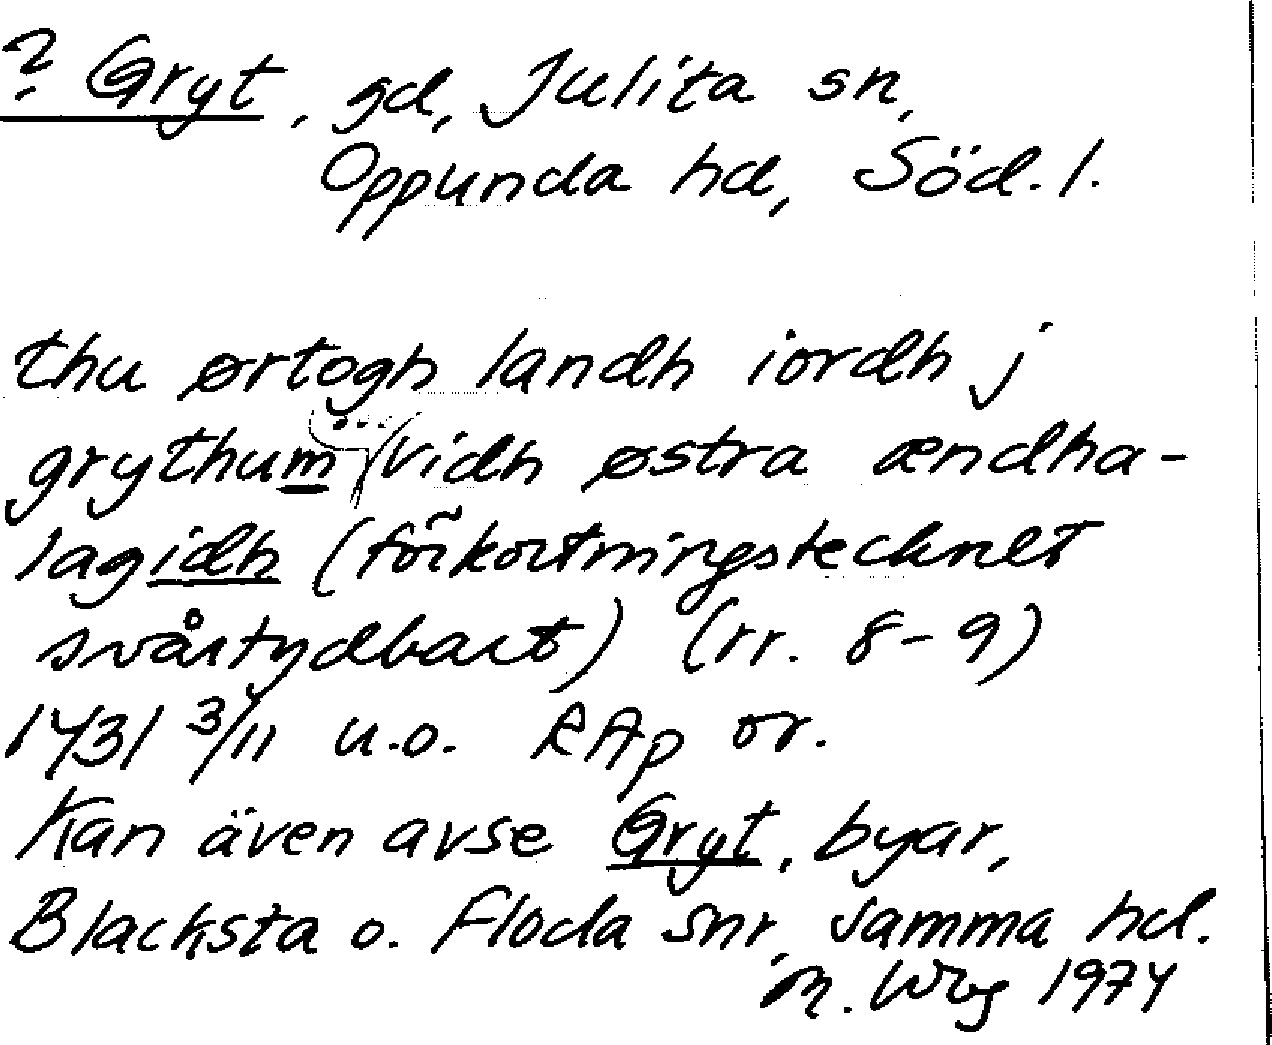 ? Gryt, gd, Julita sn,
Oppunda hd, Söd. l.
thu ørtogh landh iordh j
grythum (vidh østra ændha-
lagidh (förkortningstecknet
svårtydbart) (rr. 8-9)
1431 3/11 u.o. RAp or.
Kan även avse Gryt, byar,
Blacksta o. Floda snr, samma hd.
M. Wbg 1974